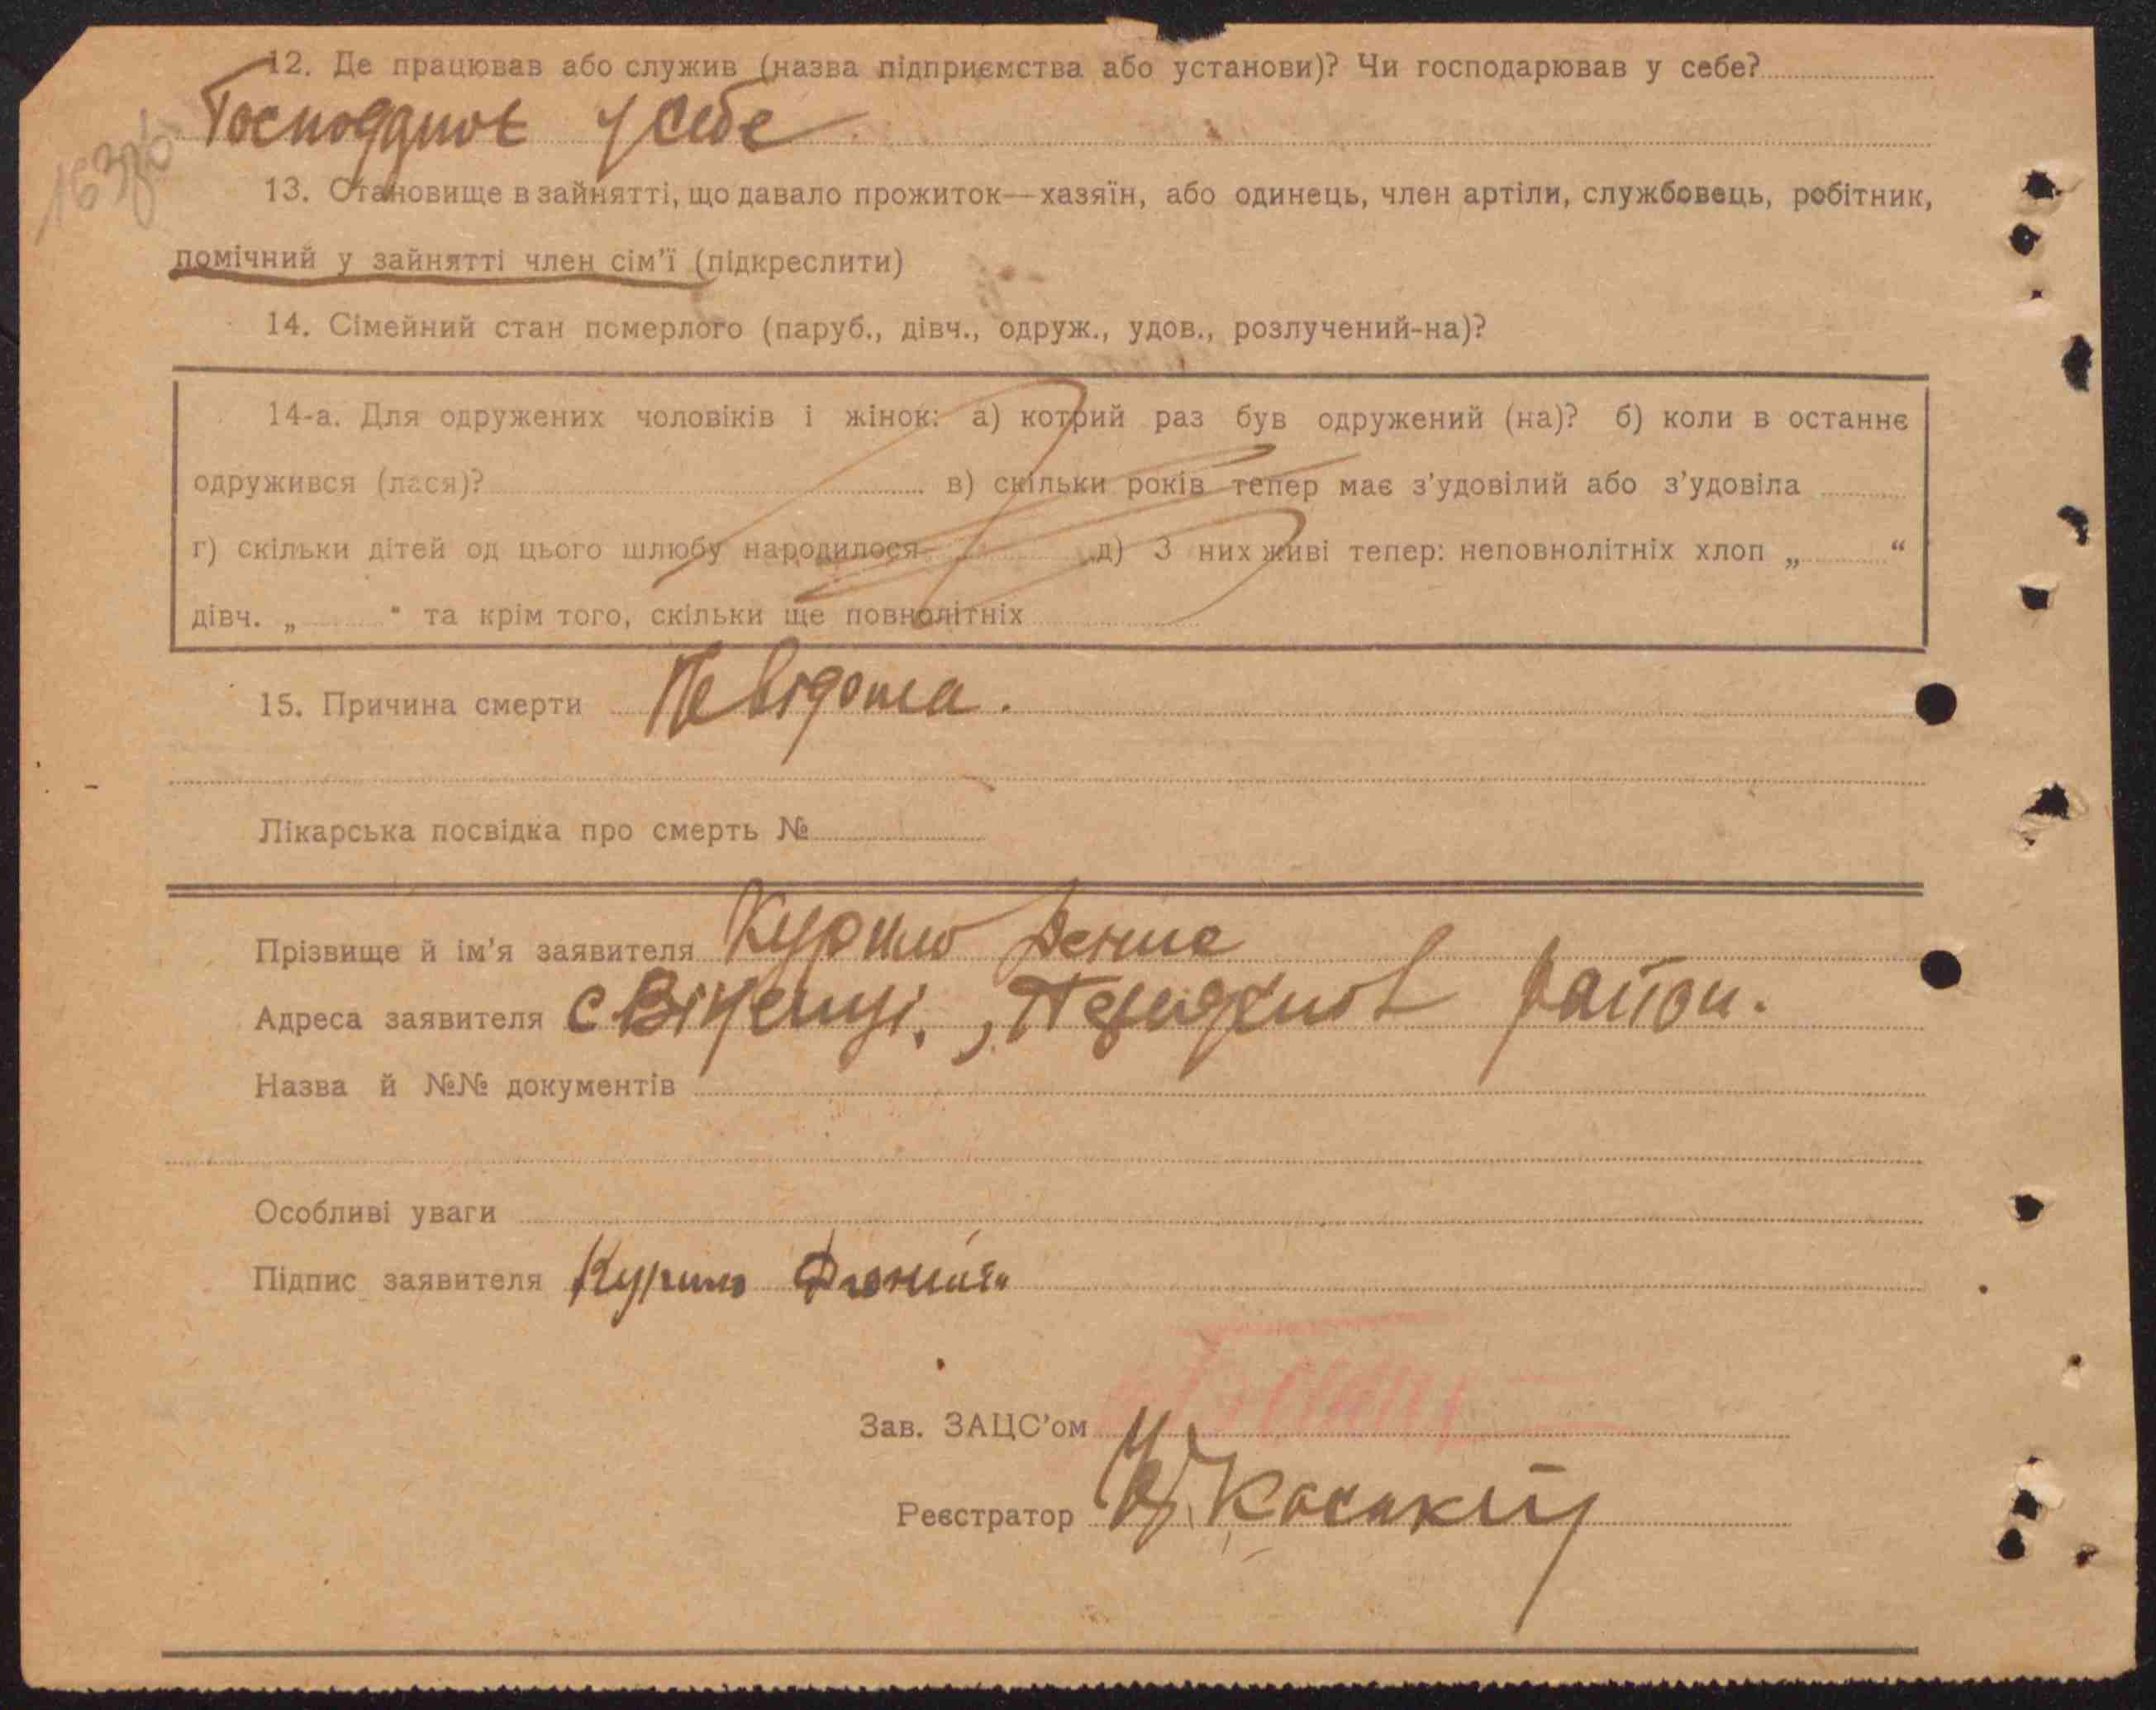 12. Де працював або служив (назва підприємства або установи)? Чи господарював у себе?
у себе
13. Становище в зайнятті, що давало прожиток—хазяїн, або одинець, член артіли, службовець, робітник,
помічний у зайнятті член сім'ї (підкреслити)
14. Сімейний стан померлого (паруб., дівч., одруж., удов., розлучений-на)?
14-а. Для одружених чоловіків і жінок: а) котрий раз був одружений (на)? б) коли в останнє
одружився (лася)? в) скільки років тепер має з'удовілий або з'удовіла
г) скільки дітей од цього шлюбу народилося д) З них живі тепер: неповнолітніх хлоп „ “
дівч. „ “ та крім того, скільки ще повнолітніх
15. Причина смерти Невідома.
Лікарська посвідка про смерть №
Прізвище й ім'я заявителя Курило
Адреса заявителя с район.
Назва й №№ документів
Особливі уваги
Підпис заявителя Курило
Зав. ЗАЦС'ом
Реєстратор